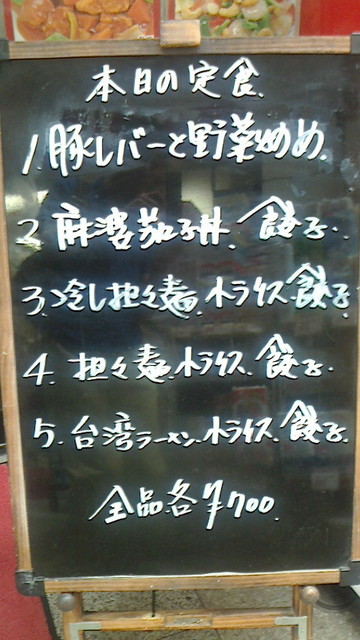 本日の定食.
1. 豚レバーと野菜炒め.
2. 麻婆茄子丼. 餃子.
3. 冷し担々麺. 小ライス. 餃子.
4. 担々麺. 小ライス. 餃子.
5. 台湾ラーメン. 小ライス. 餃子.
全品各¥700.